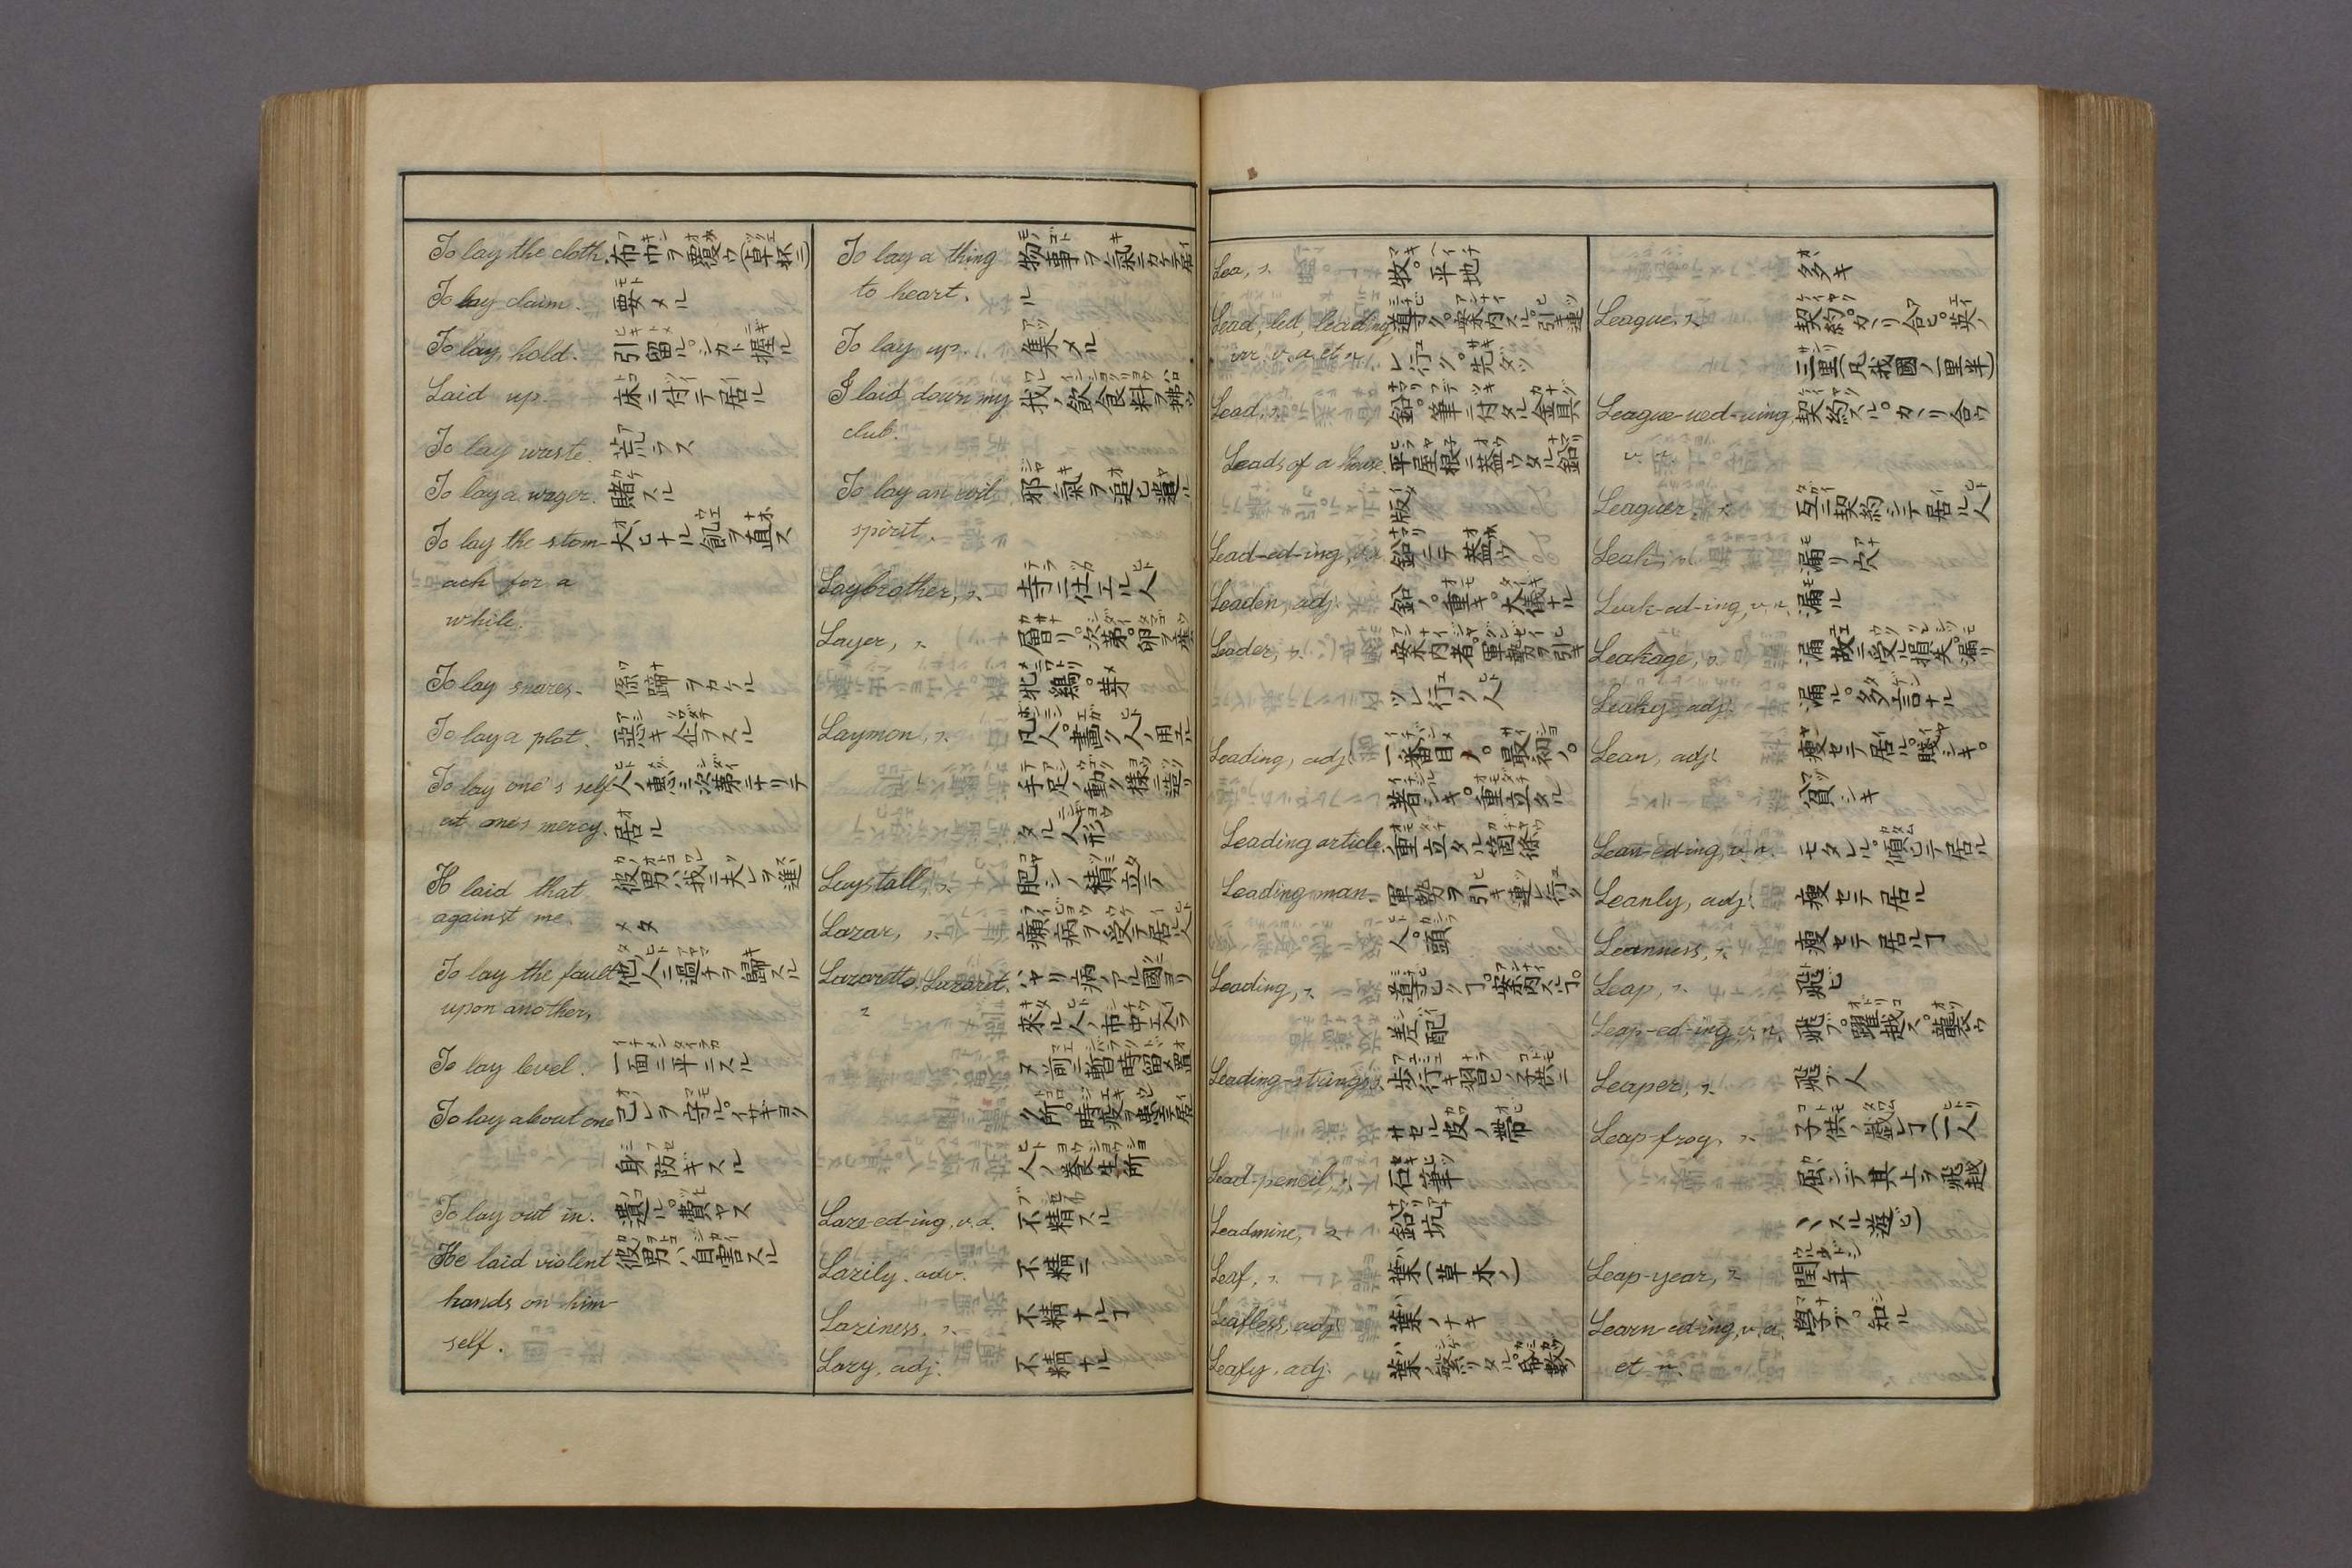 To lay the cloth. 布巾ヲ覆ウ(卓杯ニ)
To lay claim. 要メル
To lay hold. 引留ル。シカト握ル
Laid up. 床ニ付テ居ル
To lay waste. 荒ラス
To lay a wager. 賭スル
To lay the stom- 大ヒナル飢ヲ直ス
ach for a
while.
To lay snares. 係蹄ヲカケル
To lay a plot. 惡キ企ヲスル
To lay one's self 人ノ惠ニ次第ニナリテ
at one's mercy. 居ル
H laid that 彼男ハ我ニ夫レヲ進
against me. メタ
To lay the fault 他人ニ過チヲ歸スル
upon another,
To lay level. 一面ニ平ニスル
To lay about one 己レヲ守ル。イサギヨク
身防ギスル
To lay out in. 遺ル。費ヤス
He laid violent 彼男ハ自害スル
hands on him-
self.
To lay a thing 物事ヲ氣ニカケテ居
to heart. ル
To lay up. 集メル
I laid down my 我ノ飲食料ヲ拂ウ
club.
To lay an evil 邪氣ヲ追ヒ遣ル
spirit.
Laybrother, n. 寺ニ仕エル人
Layer, n. 層リ。次第。卵ヲ産
牝鷄。芽
Layman, n. 凡人。畵ク人ノ用エル
手足ノ動ク様ニ造リ
タル人形
Laystall, n. 肥シノ積立テ
Lazar, n. 癩病ヲ受テ居ル人
Lazaretto, Lazaret. ハヤリ病ノアル國ヨリ
n 來ル人ノ市中エ入ラ
ヌ前ニ暫時留メ置
ク所。時疫ヲ患テ居
人ノ養生所
Laze-ed-ing, v.a. 不精スル
Lazily. adv. 不精ニ
Laziness. n. 不精ナルヿ
Lazy, adj. 不精ナル
Lea, n. 牧。平地
Lead, led, leading, 導ク。案内スル。引連
irr. v. a et n レ行ク。先ダツ
Lead, n. 鉛。筆ニ付タル金具
Leads of a house. 平屋根ニ葢ウタル鉛
版
Lead-ed-ing, v.a. 鉛ニテ葢ウ
Leaden, adj. 鉛ノ。重キ。大儀ナル
Leader, n. 案内者。軍勢ヲ引キ
ツレ行ク人
Leading, adj. 一番目ノ。最初ノ。
著シキ。重立タル
Leading article. 重立タル箇條
Leading man. 軍勢ヲ引キ連レ行ク
人。頭
Leading, n. 導ビクヿ。案内スルヿ。
差配
Leading-strings, 歩行キ習ヒノ子供ニ
サセル皮ノ帶
Lead-pencil, n. 石筆
Leadmine, n. 鉛坑
Leaf, n. 葉(草木ノ)
Leafless, adj. 葉ノナキ
Leafy, adj. 葉ノ繁リタル。帋數
多キ
League, n. 契約。カヽリ合ヒ。英ノ
三里(凡我國ノ一里半)
League-ued-uing, 契約スル。カヽリ合ウ
v. n.
Leaguer. n. 互ニ契約シテ居ル人
Leak, n. 漏リ穴
Leak-ed-ing, v.n. 漏ル
Leakage, n. 漏故ニ受ル損失。漏リ
Leaky adj. 漏ル。多言ナル
Lean, adj. 瘦セテ居ル。賤シキ。
貧シキ
Lean-ed-ing, v.n. モタレル。傾ヒテ居ル
Leanly, adj. 瘦セテ居ル
Leanness, n. 瘦セテ居ルヿ
Leap, n. 飛ビ
Leap-ed-ing, v.n. 飛ブ。躍越ス。襲ウ
Leaper, n. 飛ブ人
Leap-frog, n. 子供ノ戯レヿ(一人
屈ンデ其上ヲ飛越
ヽスル遊ビ)
Leap-year, n. 閏年
Learn-ed-ing, v. a. 學ブ。知ル
et n.